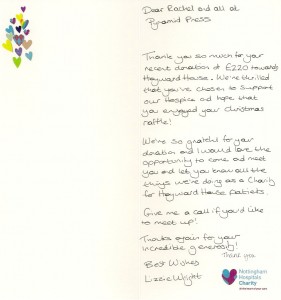 Dear Rachel and all at
Pyramid Press
Thank you so much for your
recent donation of £220 towards
Hayward House. We're thrilled
that you've chosen to support
our Hospice and hope that
you enjoyed your Christmas
raffle!
We're so grateful for your
donation and I would love the
opportunity to come and meet
you and let you know all the
things we're doing as a Charity
for Hayward House patients.
Give me a call if you'd like
to meet up!
Thanks again for your
incredible generosity!
Best Wishes
Lizzie Wright
Thank you
Nottingham
Hospitals
Charity